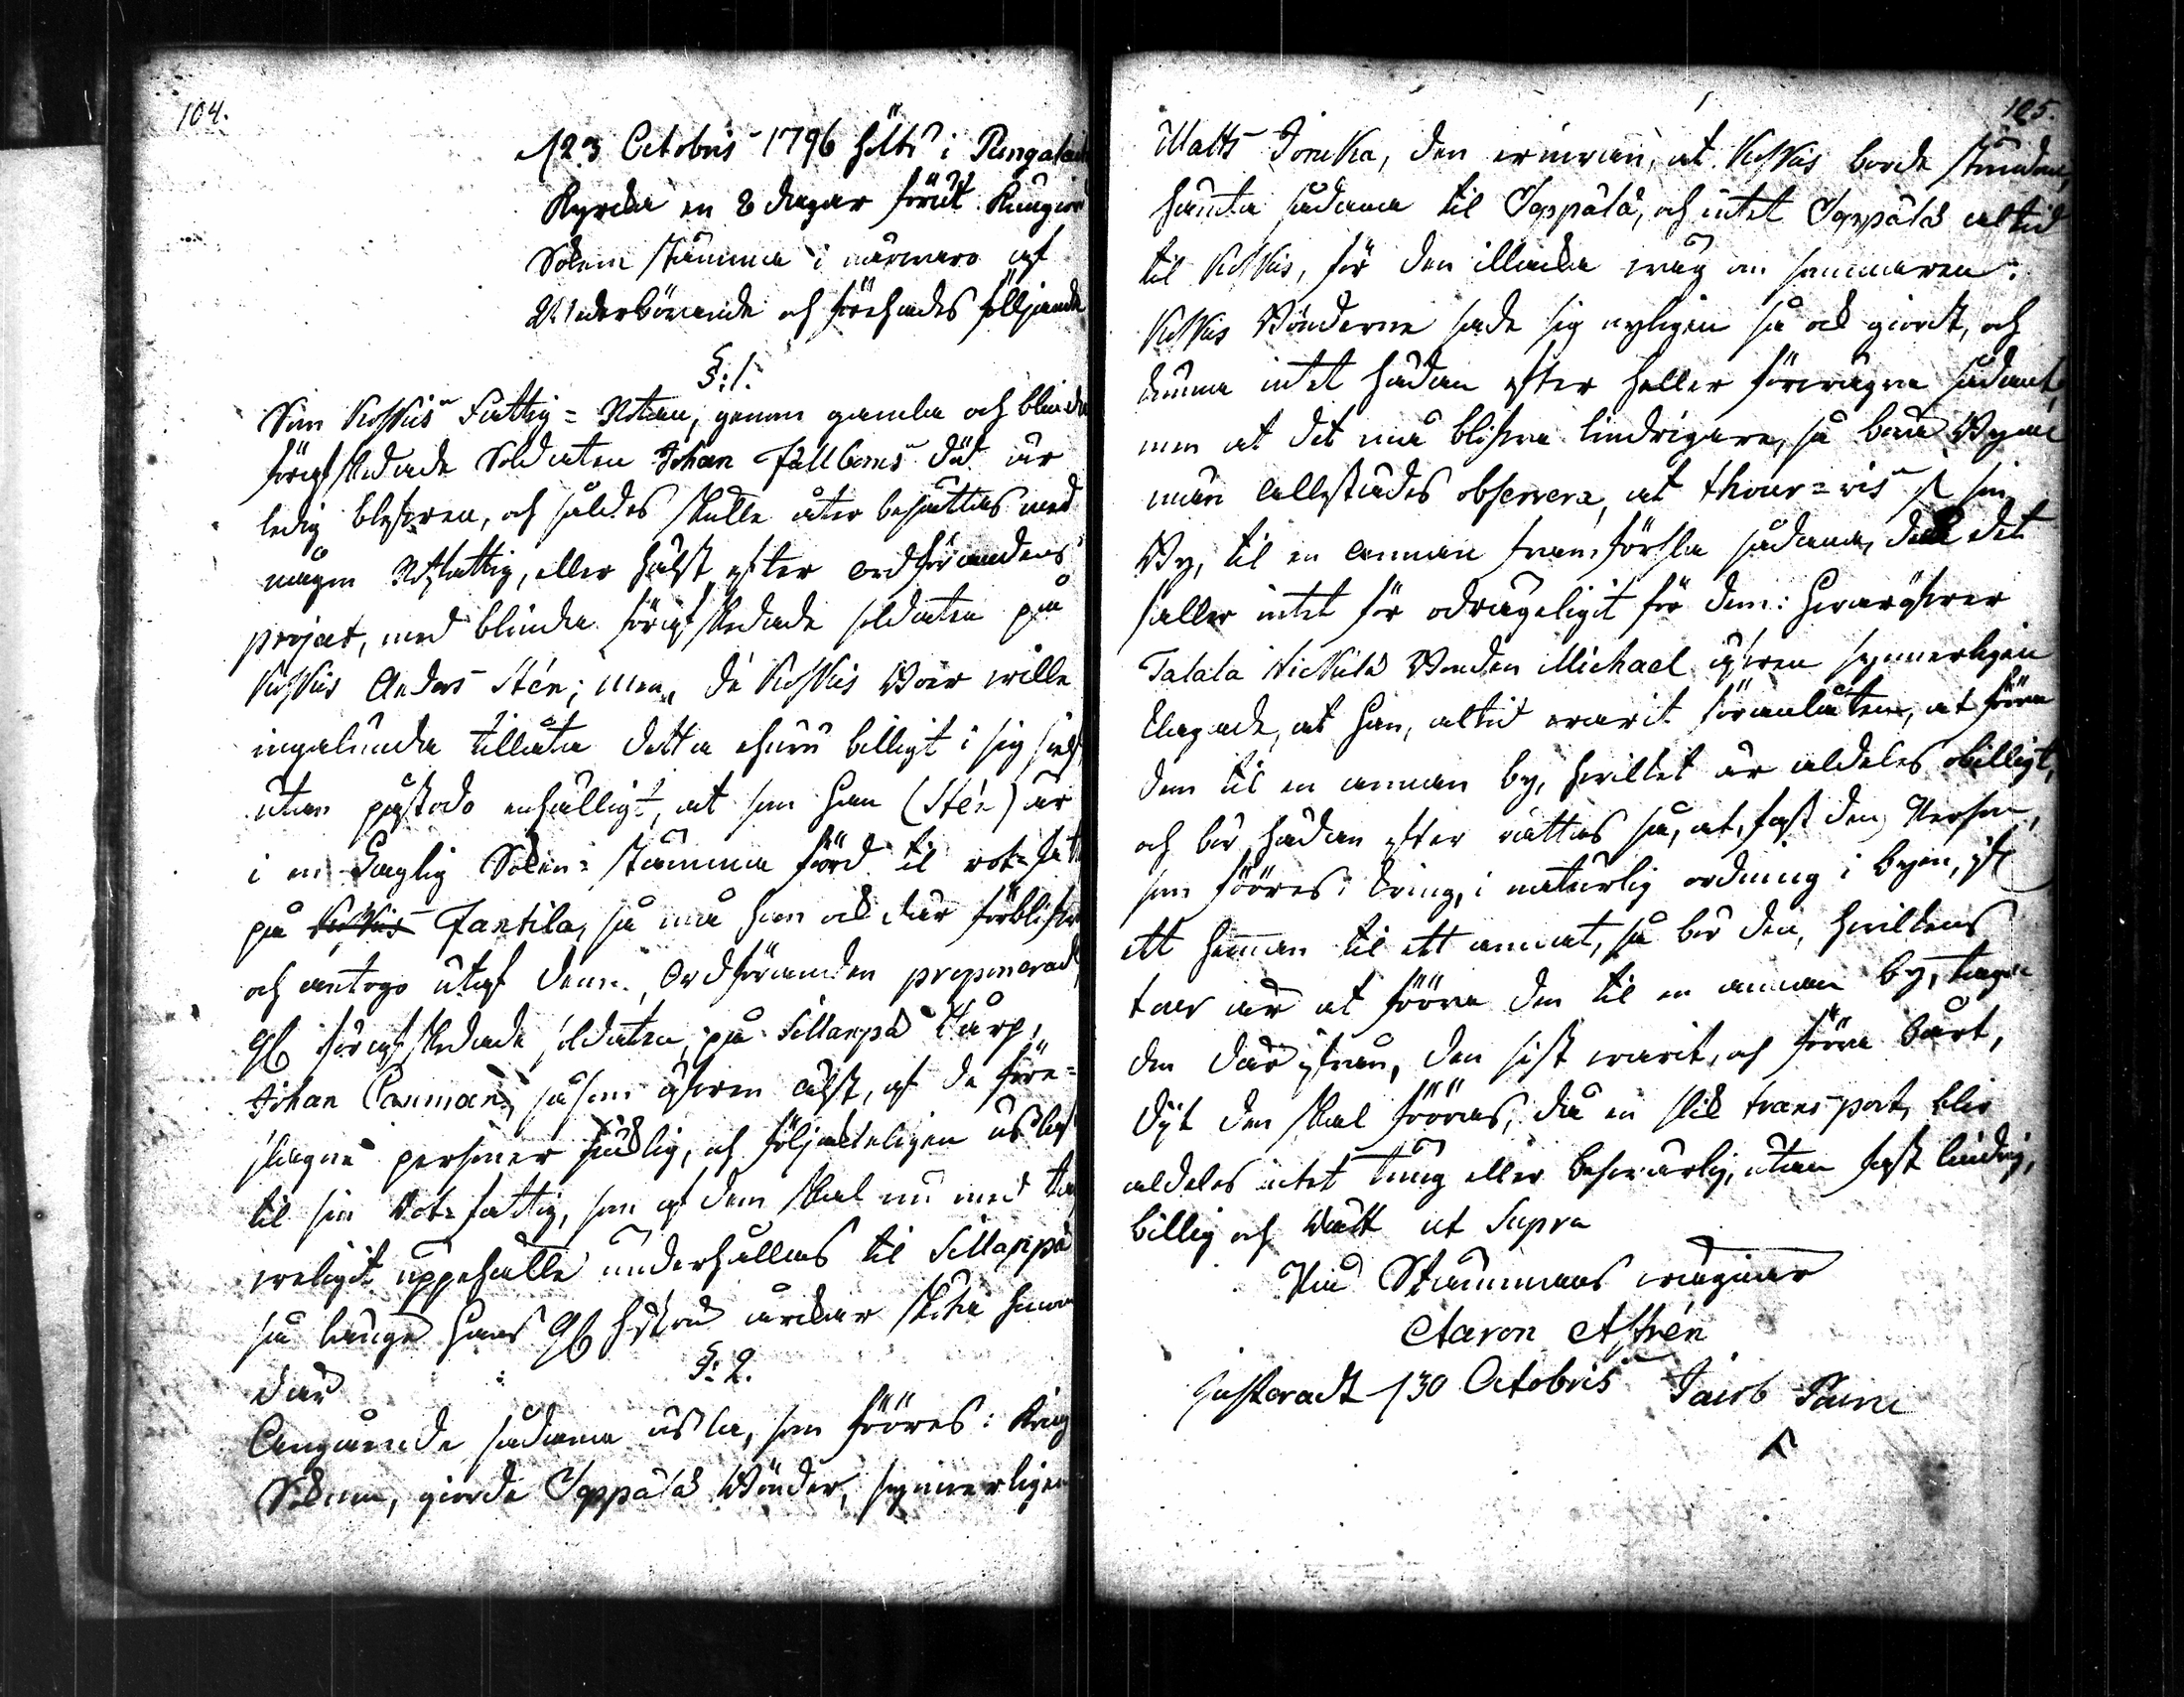 104.
d 23 Octobris 1796 hölts i Pungalai
Kyrcka en 8 dagar förut Kungiord
Sokne stämma i närwaro af
Wederbörande och förehades följande
§: 1.
Som Koskis Fattig=Rotan, genom gamla och blinda
förafskedade Soldaten Johan Fällboms död är
ledig blefwen, och således skulle åter besättas med
någon Rotfattig, eller hälst efter ordförandens
project, med blinda förafskedade soldaten på
Koskis Anders Stén; Men, då Koskis Boer wille
ingalunda tillåta detta ehuru billigt i sig sielf
utan påstodo enhälligt, at som han (Stén) är
i en Laglig Sokne=stämma förd til rot=fatti
på Koskis Jantila, så må han ock där förblifwa
och antogo utaf dem, Ordföranden proponerad,
förafskedade soldaten på Sillanpä Torp,
Johan Canman, såsom äfwen älst, af de före=
slagne personer siuklig, och följackteligen usla
til sin Rot=fattig, som af dem skal nu med ta
weligit uppehälle underhållas til Sillanpä
så länge hans hustru orckar sköta honom
där
§: 2.
Angående sådana usla, som fööres: kring
Soknen, giorde Joppala Bönder, synnerligen
105.
Matts Jonika, den erinran, at Koskis borde stundom
hämta sådana til Joppala, och intet Joppala altid
til Koskis, för den illacka wäg om sommaren:
Koskis Bönderne sade sig nyligen så ock giordt, och
kunna intet hädan efter heller förwägra sådant,
men at det må blifwa lindrigare, så böra Byar
män allestädes observera, at tour=vis ifrån sin
By, til en annan framförsla sådana, då det
faller intet för odrägeligit för dem: Hwaröfwer
Talala Nickilä Bonden Michael äfwen synnerligen
klagade, at han, altid warit föranlåten, at föra
dem til en annan by, hwilket är aldeles obilligt,
och bör hädan efter rättas så, at, fast den Person,
som fööres: kring, i naturlig ordning i byen, ifrån
ett hemman til ett annat, så bör den, hwilkens
tour är at fööra den til en annan by, taga
den där ifrån, den sist warit, och föra bort,
dyt den skal fööras, då en slik transport, blir
aldeles intet tung eller beswärlig, utan fast lindrig,
billig och Rätt ut Supra
På Stämmans wägnar
Aaron Asthrén
Justeradt d 30 Octobris Jacob Påaru